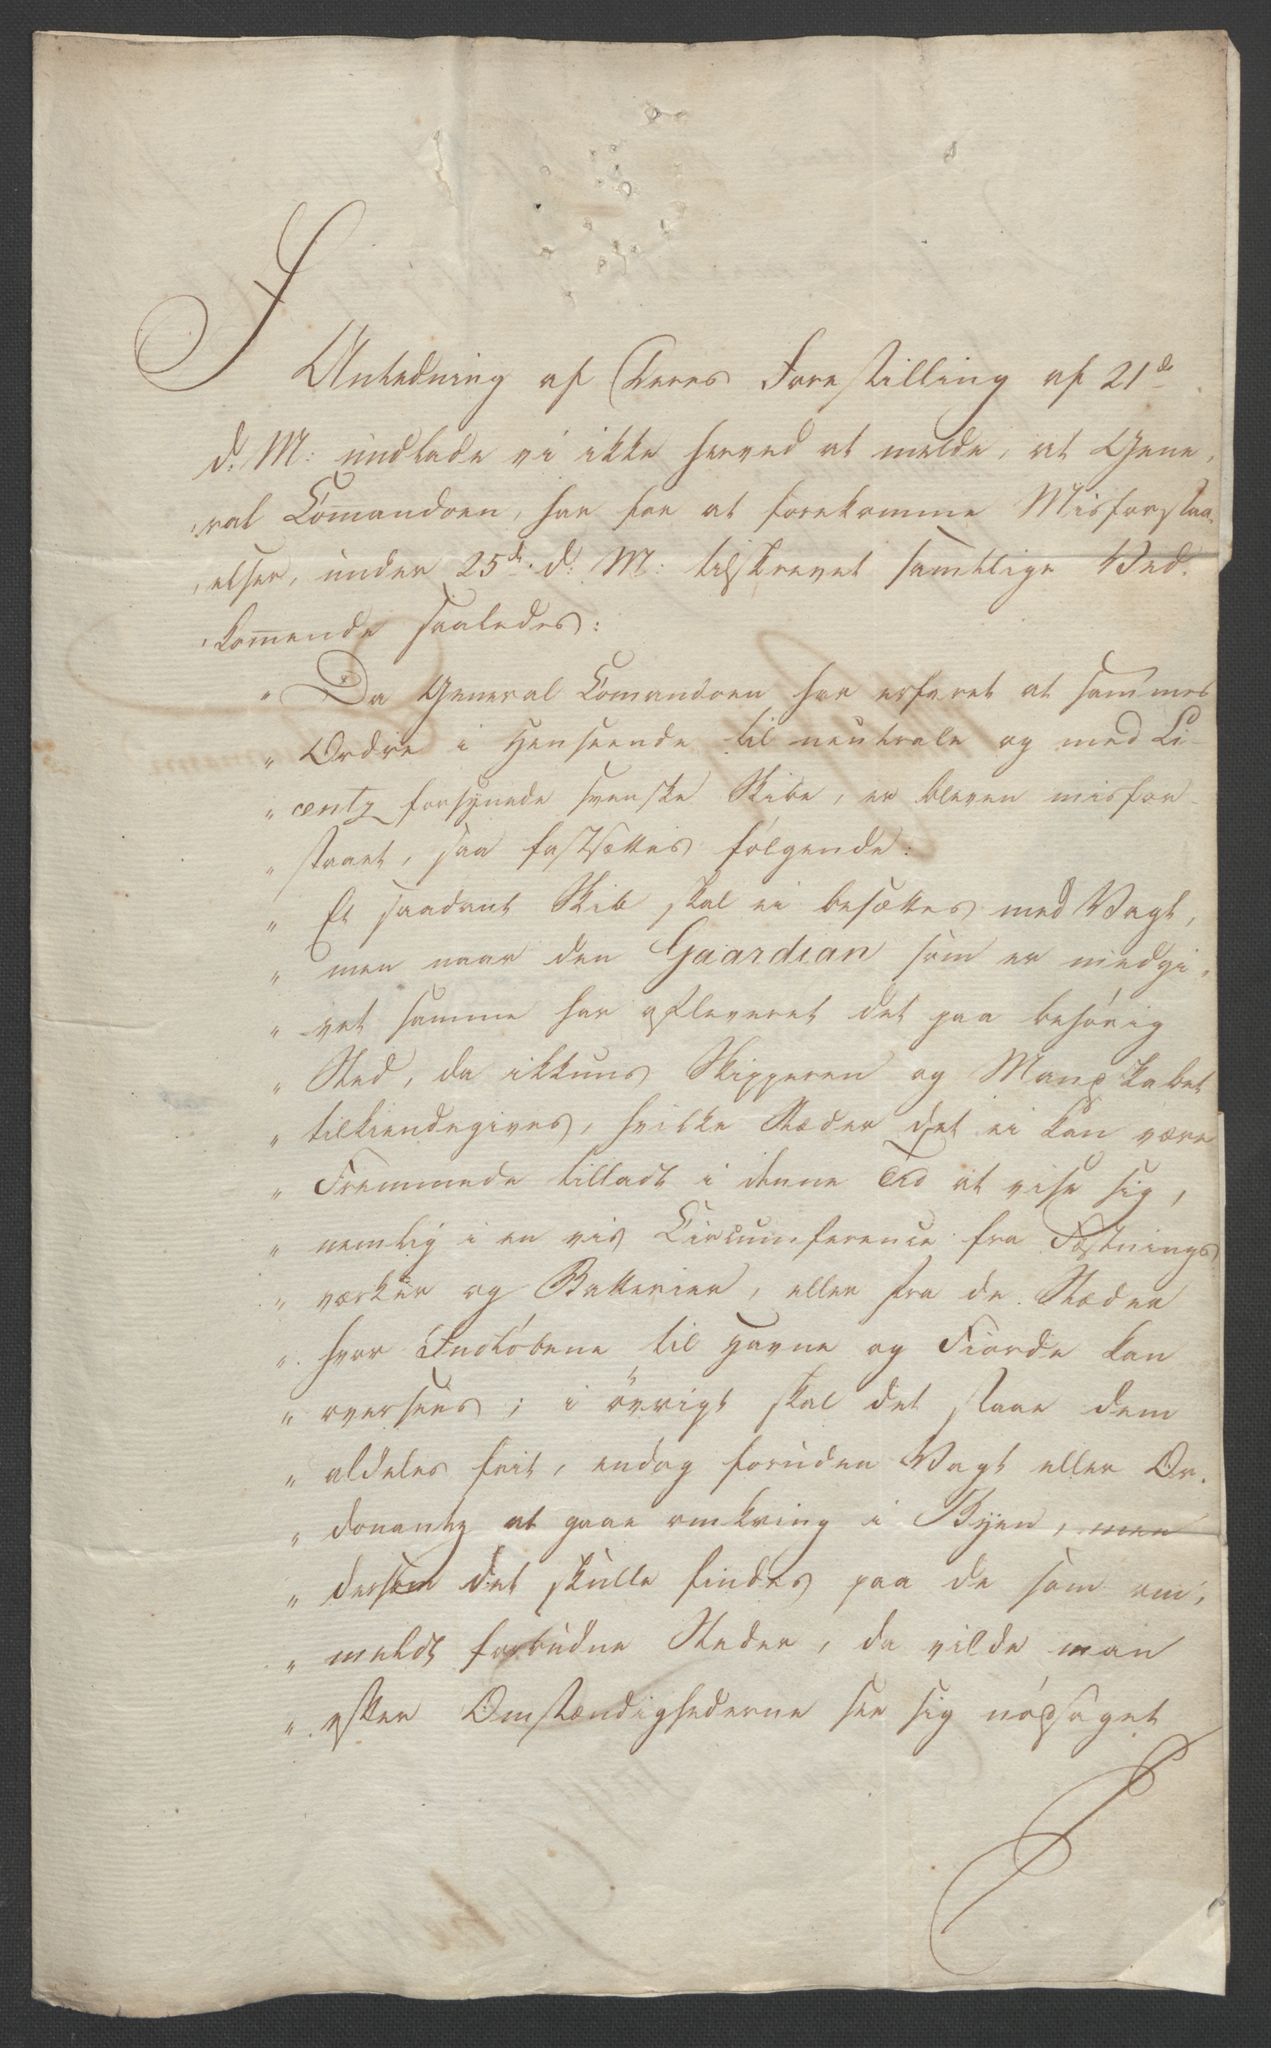 I
Anledning af Deres Forestilling af 21de
d. M: undlade vi ikke herved at melde, at Gene,
,ral Com̅andoen, har for at forekomme Misforstaa,
,elser, under 25de d: M: tilskrevet samtlige Ved,
,kom̅ende saaledes:
" Da General Com̅andoen har erfaret at sammes
" Ordre i Henseende til neutrale og med Li-
" centz forsynede svenske Skibe, er bleven misfor-
" staaet, saa fastsættes følgende:
" Et saadant Skib skal ei besættes med Vagt,
" men naar den Gaardian som er medgi,
" vet samme har afleveret det paa behörig
" Sted, da ikkuns Skipperen og Mandskabet
" tilkiendegives, hvilke Stæder det ei kan være
" Fremmede tilladt i denne Tid at vise sig,
" nemlig i en vis Circumference fra Fæstnings
" værker og Batterier, eller fra de Stæder
" hvor Indløbene til Havne og Fiorde kan
" oversees; i övrigt skal det staae dem
" aldeles frit, endog foruden Vagt eller Or,
" donantz at gaae omkring i Byen, men
" dersom det skulle findes paa de som om,
" meldt forbudne Steder, da vilde man
" efter Omstændighederne see sig nödsaget